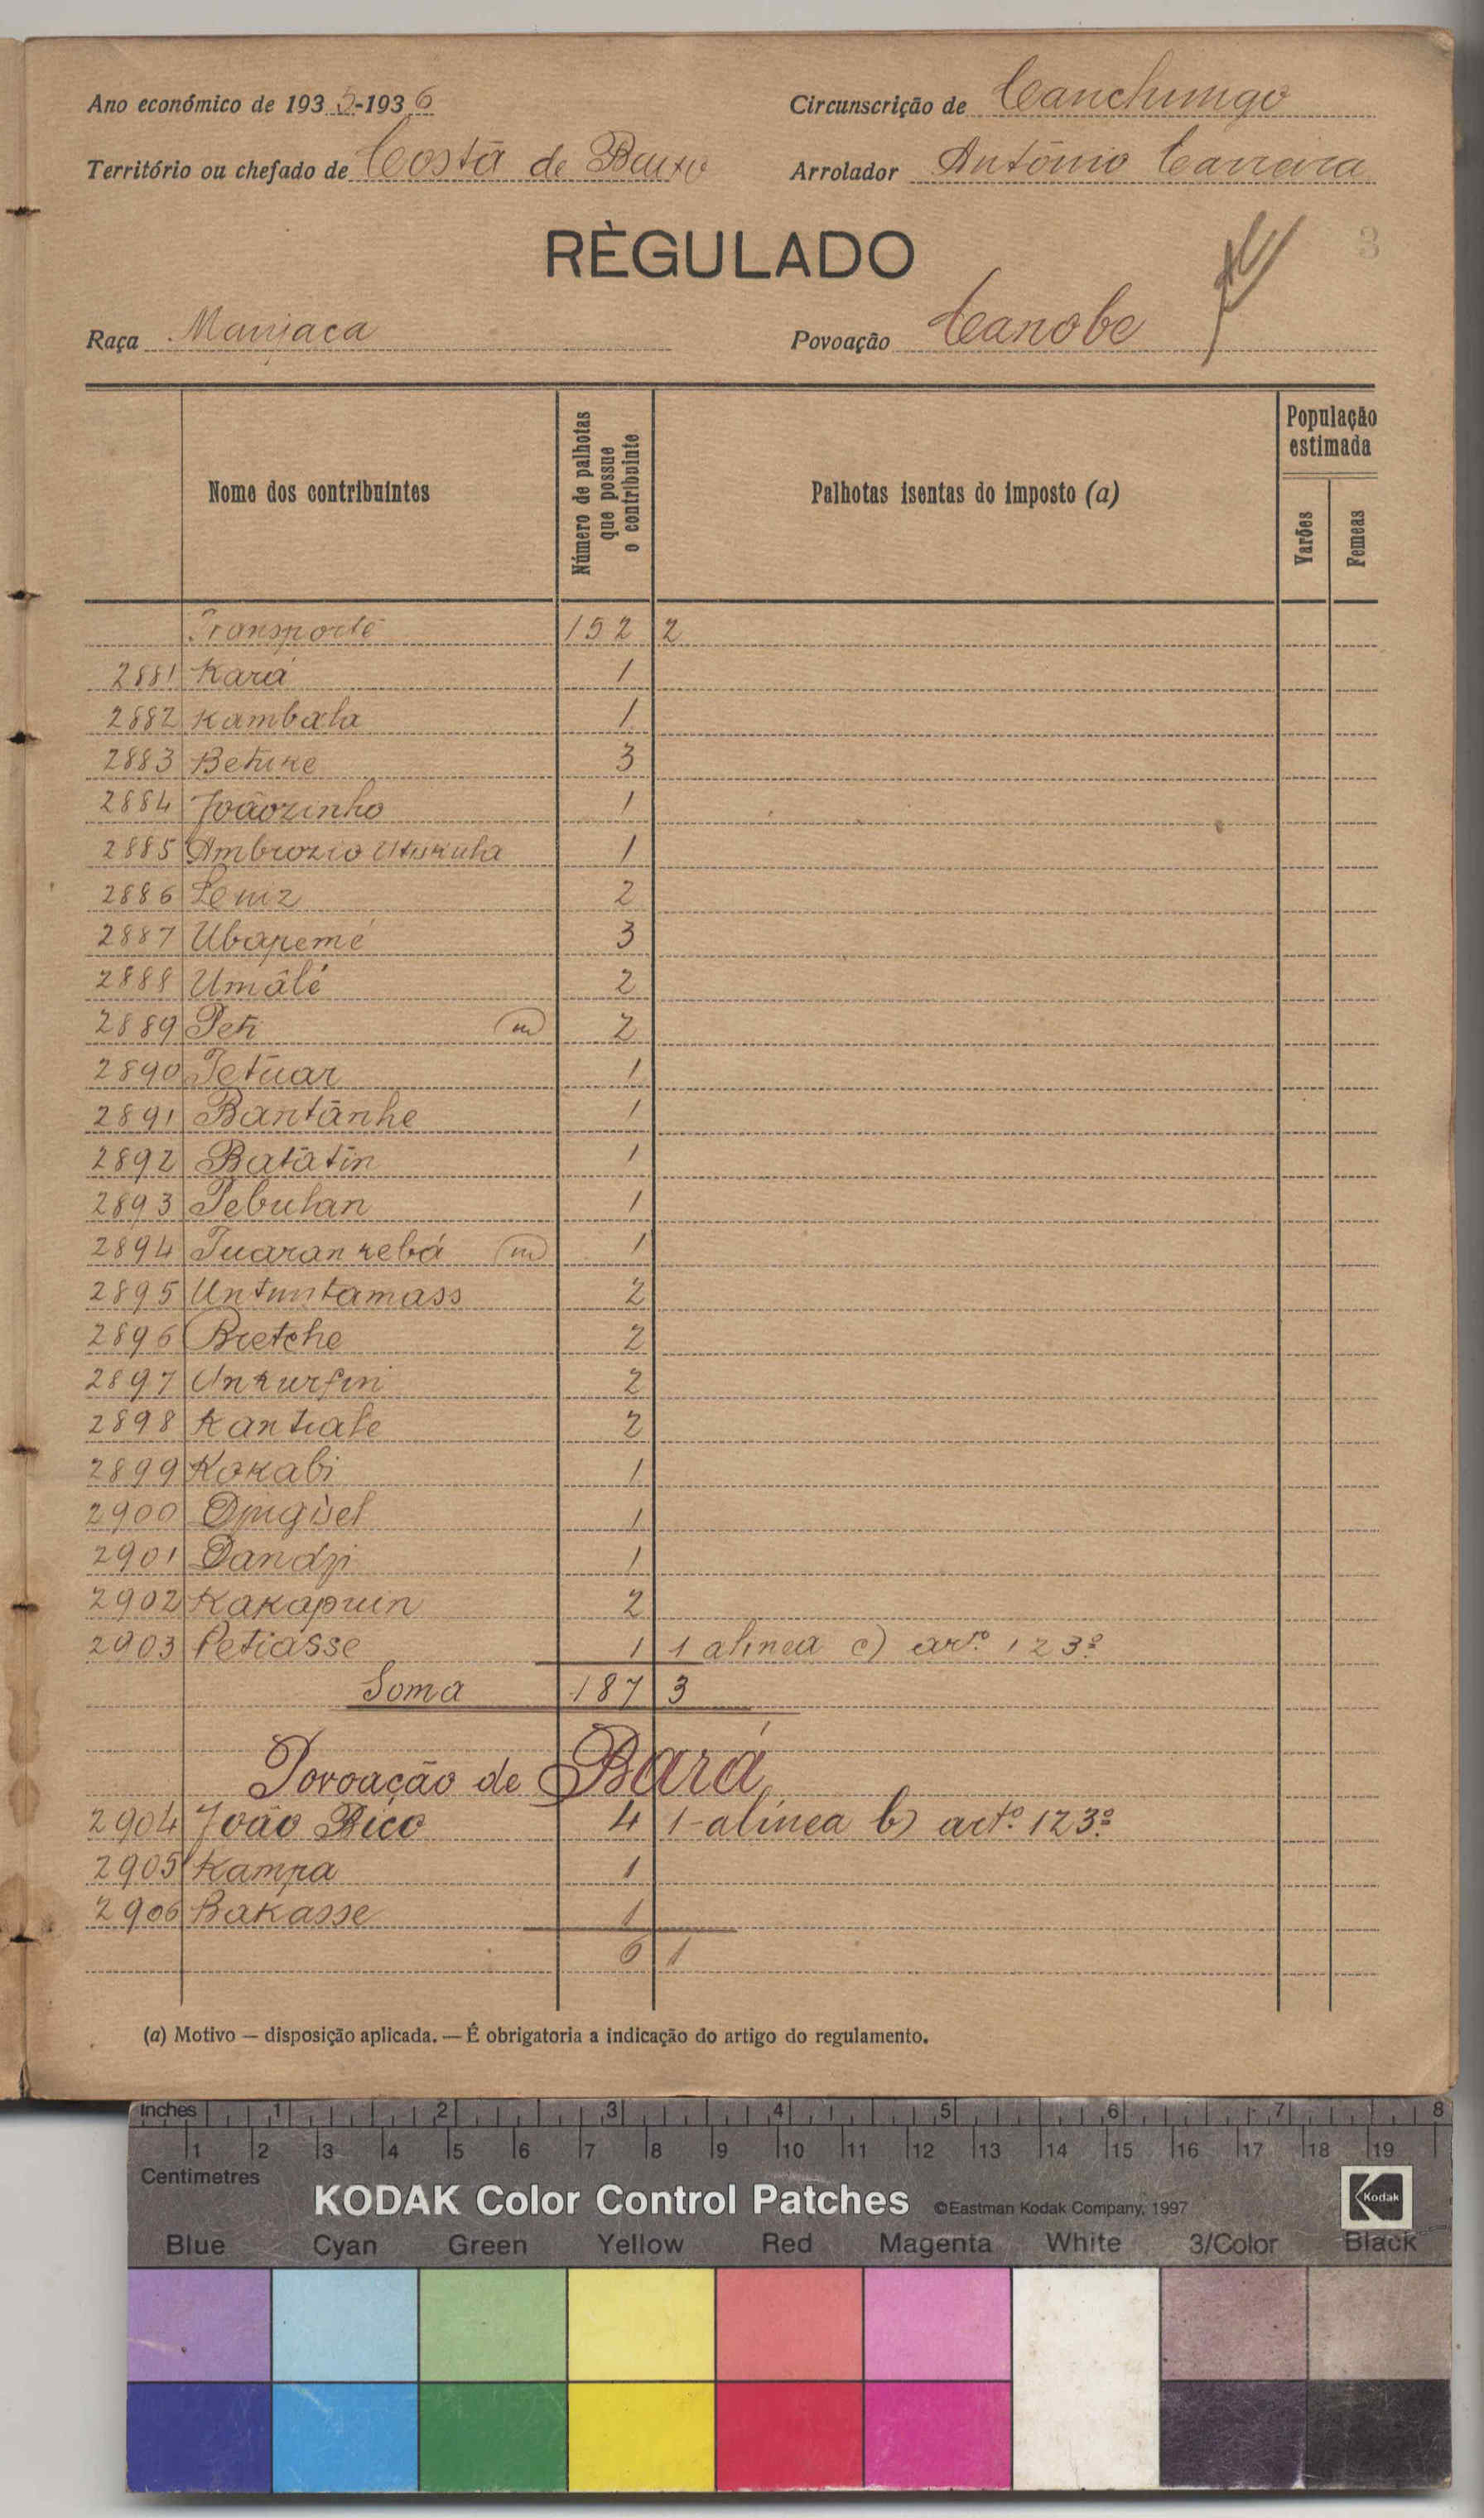 Ano económico de 1935-1936 Circunscrição de Canchungo
Território ou chefado de Costa de Baixo Arrolador António Carreira
RÈGULADO
3
Raça Manjaca Povoação Canobe
Nome dos contribuintes
Número de palhotas que possue o contribuinte
Palhotas isentas do imposto (a)
População estimada
Varões
Femeas
Transporte 152 2
2881 Kará 1
2882 Kambala 1
2883 Betuke 3
2884 Joãozinho 1
2885 Ambrozio Utukula 1
2886 Leniz 2
2887 Ubapemé 3
2888 Umâlé 2
2889 Peti m 2
2890 Tetuar 1
2891 Bantânhe 1
2892 Batatin 1
2893 Pebulan 1
2894 Tuarankebá m 1
2895 Untuntamass 2
2896 Bretche 2
2897 Unkurfin 2
2898 Kantiale 2
2899 Kokabi 1
2900 1
2901 Dandji 1
2902 Kakapuin 2
2903 Petiasse 1 1 alinea c) artº 123º
Soma 187 3
Povoação de Bará
2904 João Bico 4 1-alínea b) artº 123º
2905 Kampa 1
2906 Bakasse 1
6 1
(a) Motivo — disposição aplicada. — É obrigatoria a indicação do artigo do regulamento.
Inches 1 2 3 4 5 6 7 8
1 2 3 4 5 6 7 8 9 10 11 12 13 14 15 16 17 18 19
Centimetres
KODAK Color Control Patches ©Eastman Kodak Company, 1997 Kodak
Blue Cyan Green Yellow Red Magenta White 3/Color Black